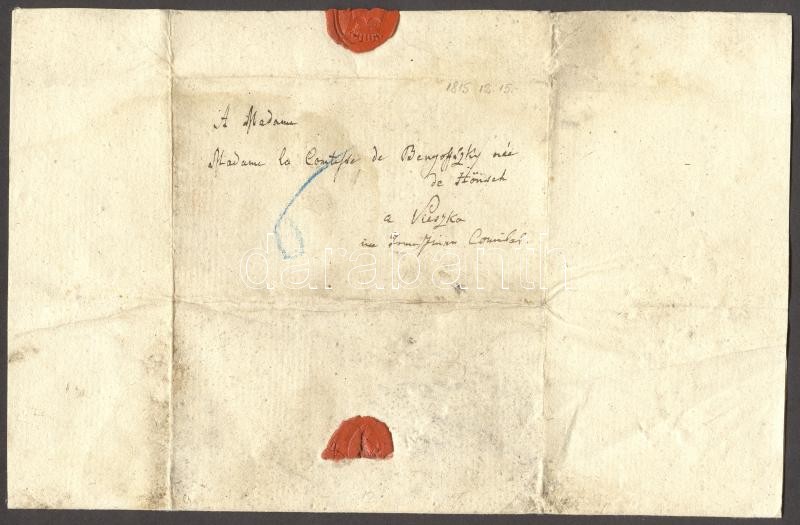 1815. 12. 15.
A Madame
Madame la Comtesse de Benyofszky née
de Hönsch
a Vieszka
im Comitat.
6
darabanth